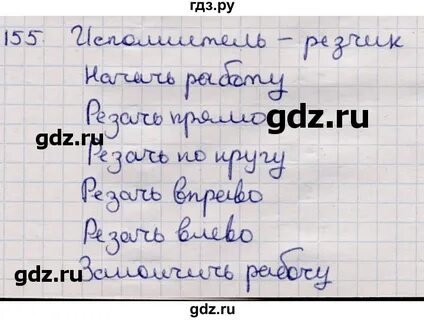 гдз.ру
155. Исполнитель – резчик
Начать работу
gdz.ru
Резать прямо
gdz.ru
Резать по кругу
gdz.ru
Резать вправо
gdz.ru
Резать влево
gdz.ru
Закончить работу
gdz.ru